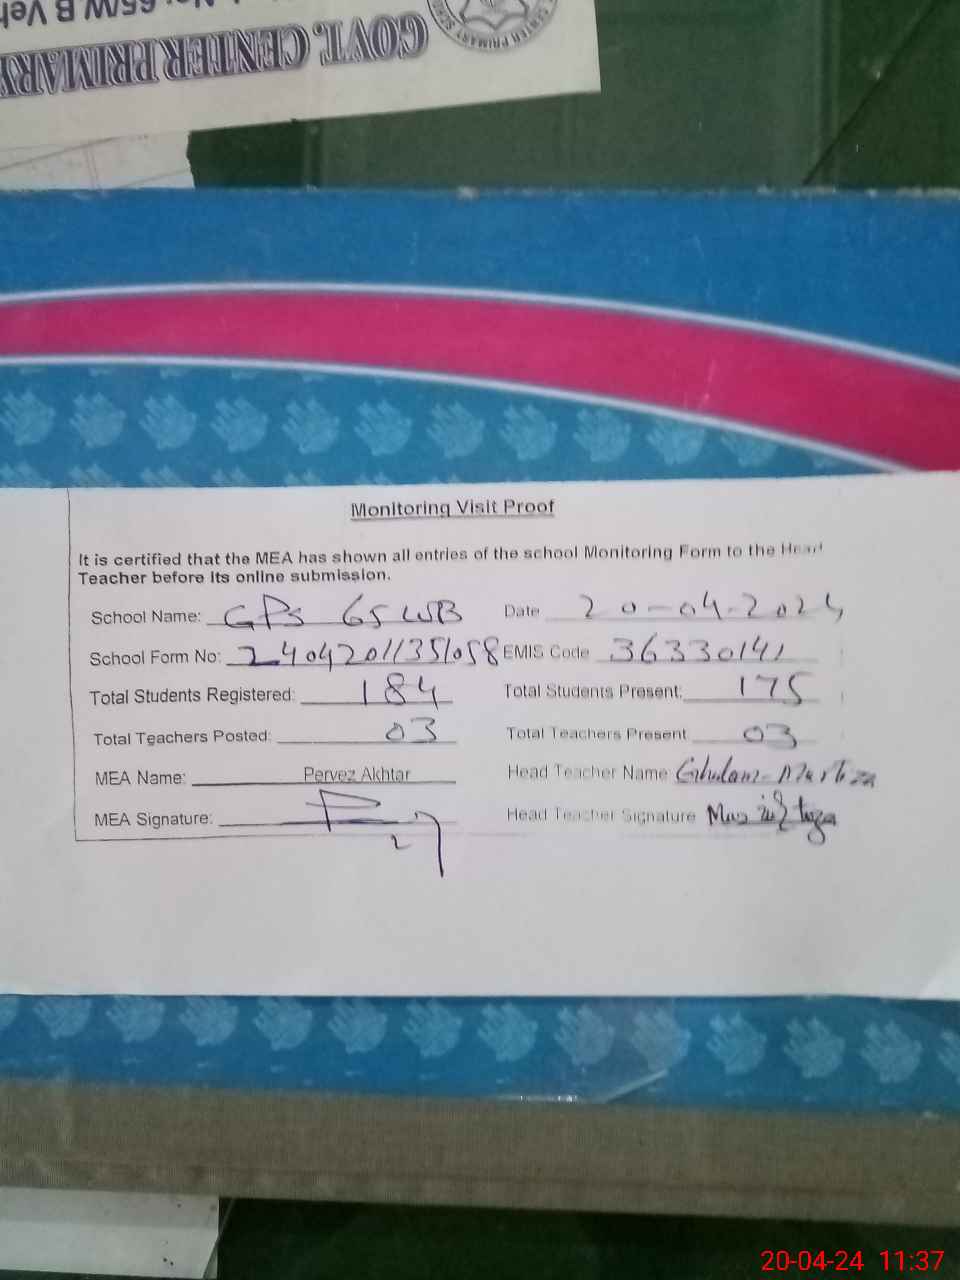 65/W B Veh
GOVT. CENTER PRIMARY
Monitoring Visit Proof
It is certified that the MEA has shown all entries of the school Monitoring Form to the Head
Teacher before its online submission.
School Name: GPS 65 WB Date 20-04-2024
School Form No: 24042011351058 EMIS Code 36330141
Total Students Registered: 184 Total Students Present: 175
Total Teachers Posted: 03 Total Teachers Present 03
MEA Name: Pervez Akhtar Head Teacher Name Ghulam Murtaza
MEA Signature: Head Teacher Signature
20-04-24 11:37